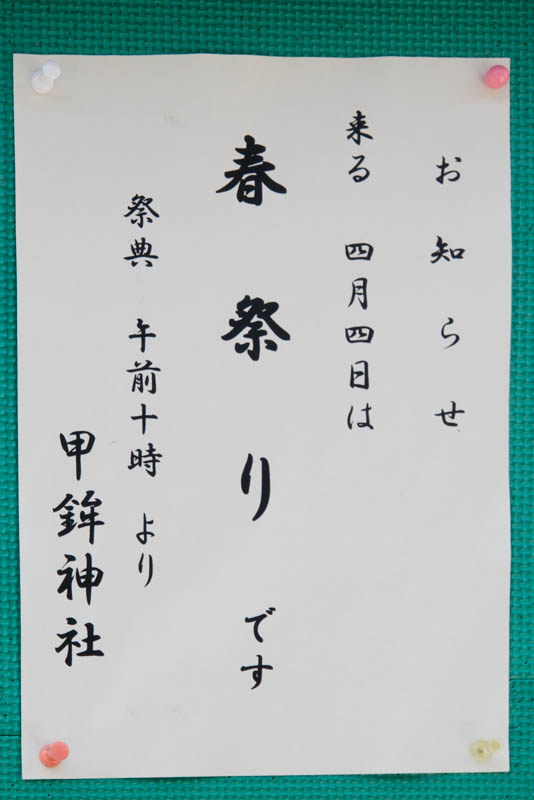 お知らせ
来る 四月四日は
春祭りです
祭典 午前十時 より
甲鉾神社